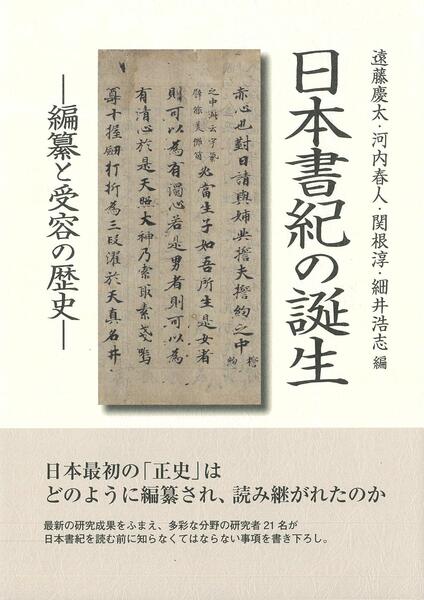 遠藤慶太・河内春人・関根淳・細井浩志 編
日本書紀の誕生
―編纂と受容の歴史―
赤心也對曰請與姉共誓夫誓約之中 誓約
之中此云宇氣
譬能美儺箇
必當生子如吾所生是女者
則可以為有濁心若是男者則可以為
有清心於是天照大神乃索取素戔嗚
尊十握劔打折為三段濯於天真名井
日本最初の「正史」は
どのように編纂され、読み継がれたのか
最新の研究成果をふまえ、多彩な分野の研究者21名が
日本書紀を読む前に知らなくてはならない事項を書き下ろし。